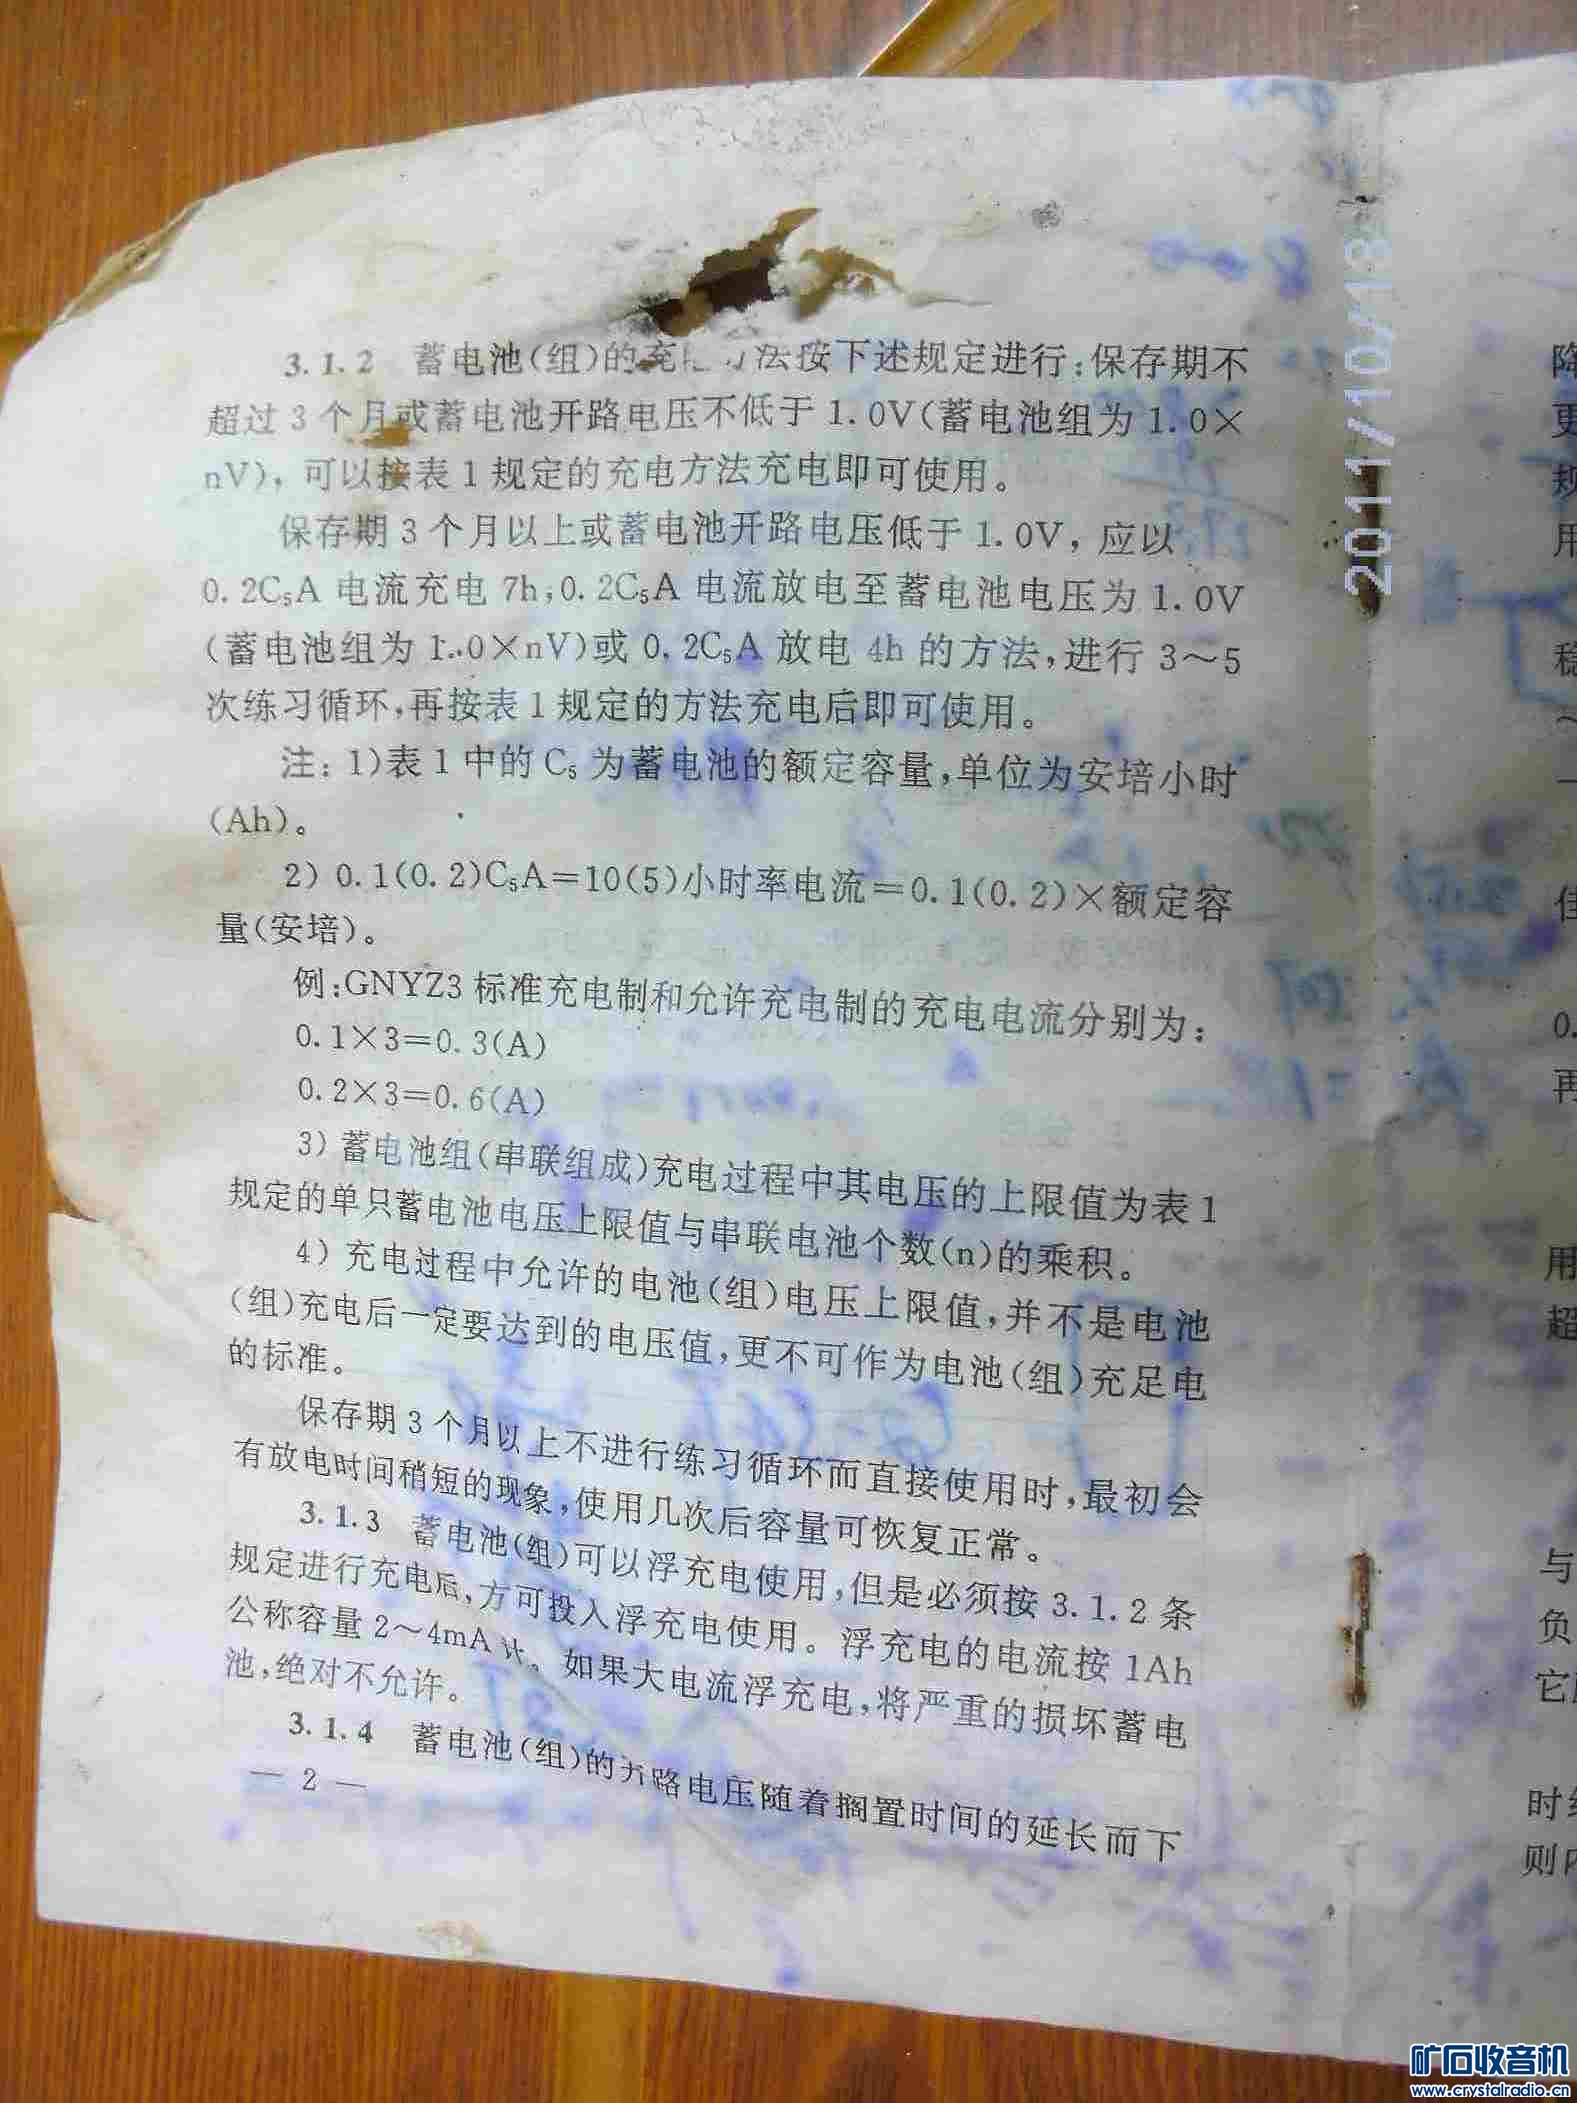 3.1.2 蓄电池(组)的充 方法按下述规定进行:保存期不
超过3个月或蓄电池开路电压不低于1.0V(蓄电池组为1.0×
nV),可以按表1规定的充电方法充电即可使用。
保存期3个月以上或蓄电池开路电压低于1.0V,应以
0.2C₅A电流充电7h;0.2C₅A电流放电至蓄电池电压为1.0V
(蓄电池组为1.0×nV)或0.2C₅A放电4h的方法,进行3~5
次练习循环,再按表1规定的方法充电后即可使用。
注:1)表1中的C₅为蓄电池的额定容量,单位为安培小时
(Ah)。
2)0.1(0.2)C₅A=10(5)小时率电流=0.1(0.2)×额定容
量(安培)。
例:GNYZ3标准充电制和允许充电制的充电电流分别为:
0.1×3=0.3(A)
0.2×3=0.6(A)
3)蓄电池组(串联组成)充电过程中其电压的上限值为表1
规定的单只蓄电池电压上限值与串联电池个数(n)的乘积。
4)充电过程中允许的电池(组)电压上限值,并不是电池
(组)充电后一定要达到的电压值,更不可作为电池(组)充足电
的标准。
保存期3个月以上不进行练习循环而直接使用时,最初会
有放电时间稍短的现象,使用几次后容量可恢复正常。
3.1.3 蓄电池(组)可以浮充电使用,但是必须按3.1.2条
规定进行充电后,方可投入浮充电使用。浮充电的电流按1Ah
公称容量2~4mA计。如果大电流浮充电,将严重的损坏蓄电
池,绝对不允许。
3.1.4 蓄电池(组)的开路电压随着搁置时间的延长而下
— 2 —
降
更
规
用
稳
佳
0.
再
用
超
与
负
它
时
则
2011/10/13
矿石收音机
www.crystalradio.cn